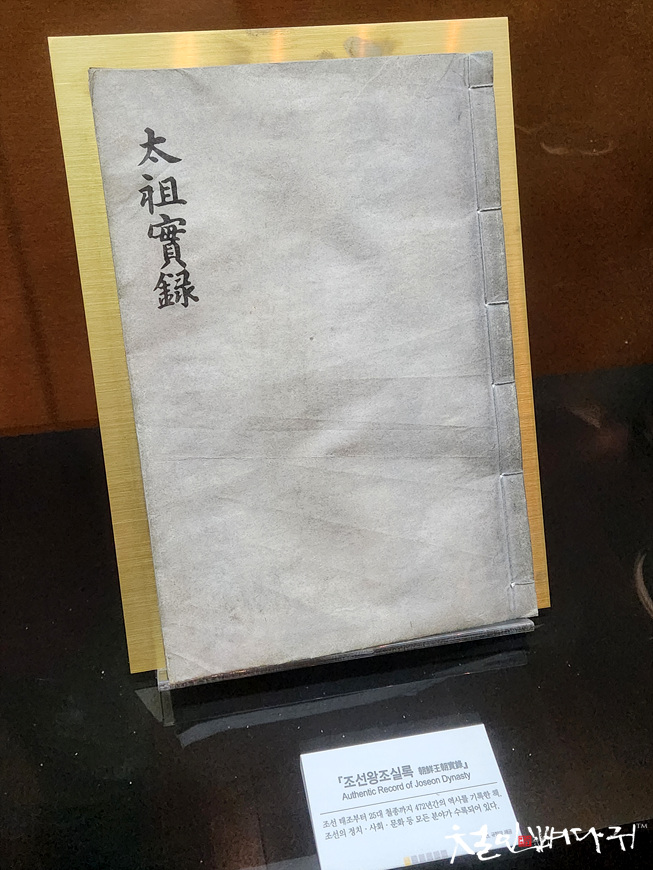 太祖實錄
『조선왕조실록 朝鮮王朝實錄』
Authentic Record of Joseon Dynasty
조선 태조부터 25대 철종까지 472년간의 역사를 기록한 책.
조선의 정치·사회·문화 등 모든 분야가 수록되어 있다.